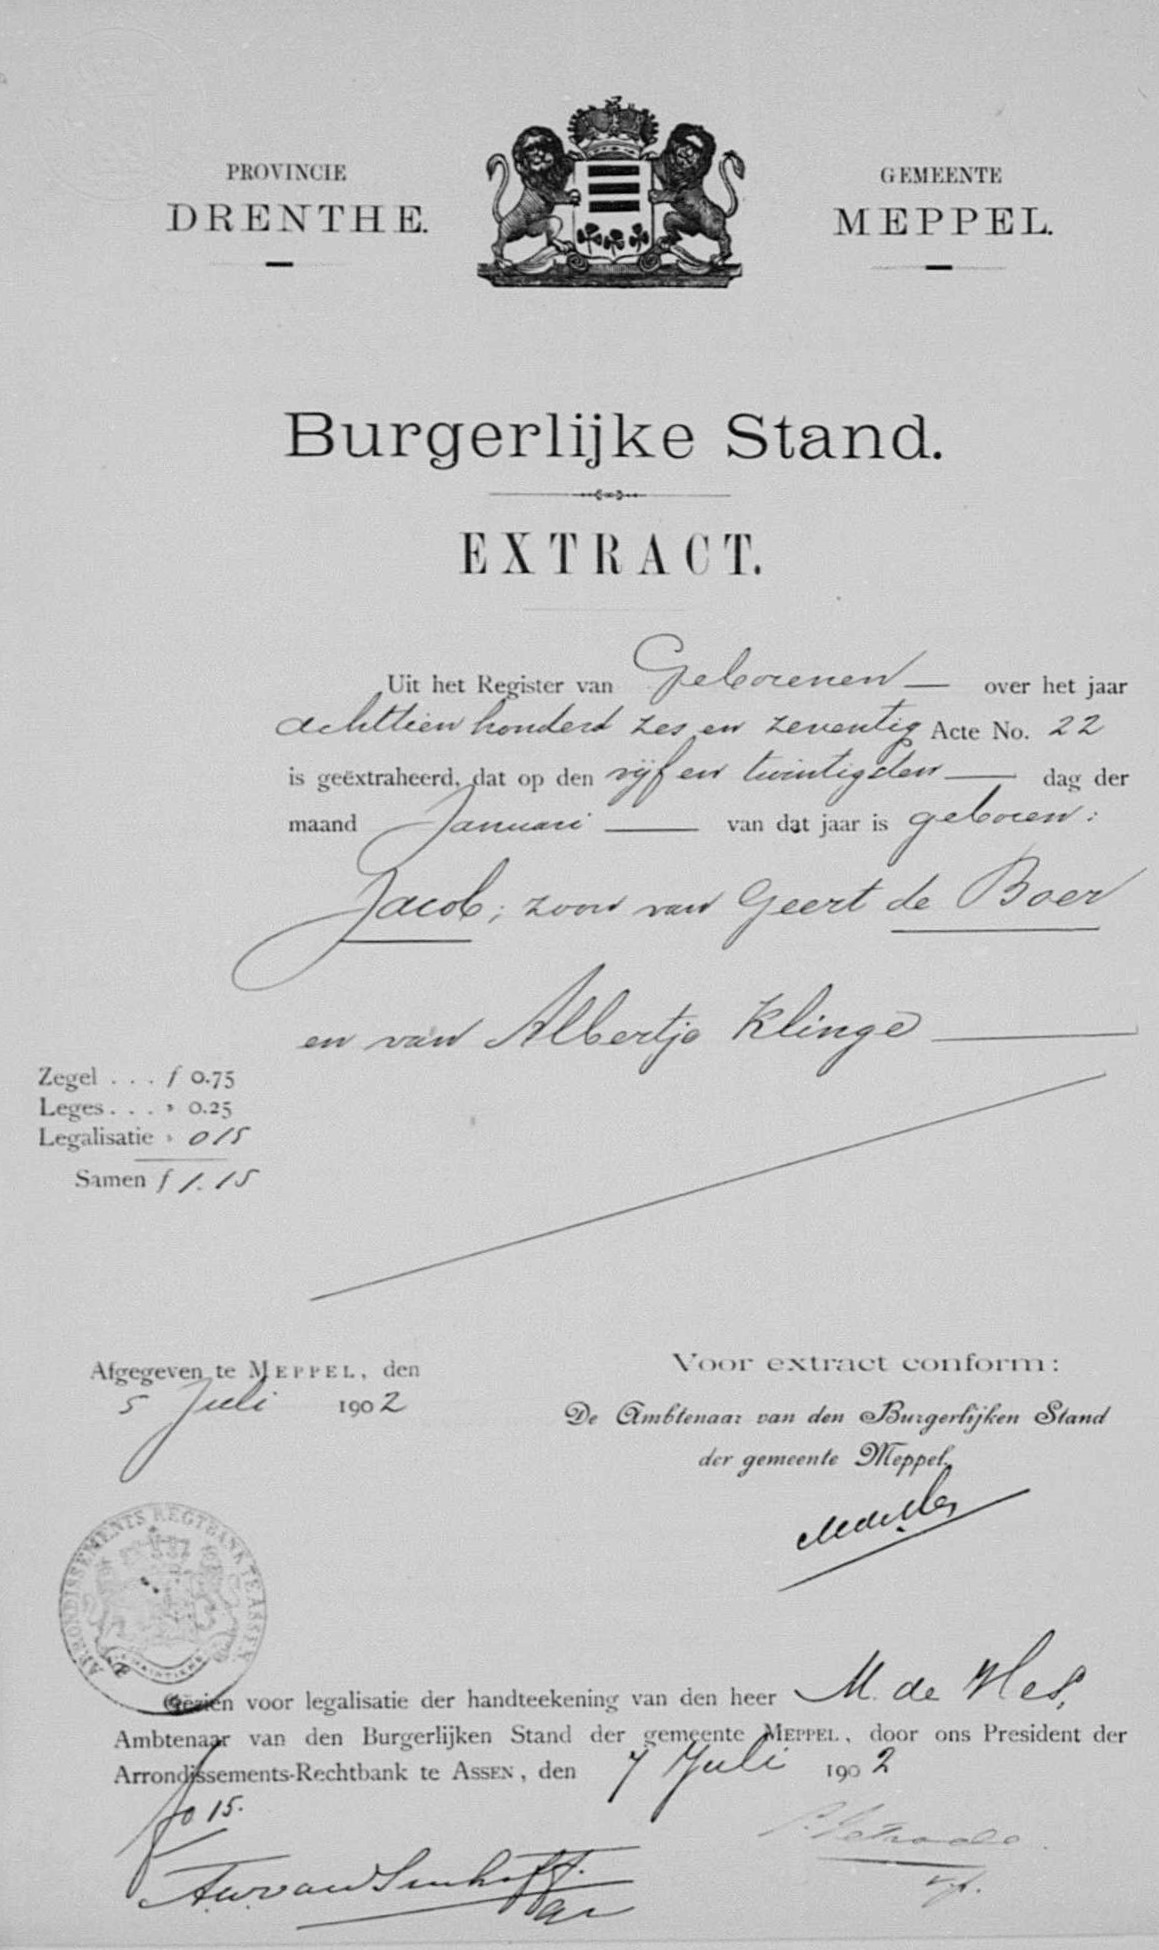 PROVINCIE
DRENTHE.
GEMEENTE
MEPPEL.
Burgerlijke Stand.
EXTRACT.
Uit het Register van Geborenen — over het jaar
achttien honderd zes en zeventig Acte No. 22
is geëxtraheerd, dat op den vijf en twintigsten — dag der
maand Januari — van dat jaar is geboren:
Jacob; zoon van Geert de Boer
en van Albertje Klinge —
Zegel . . . f 0.75
Leges . . . » 0.25
Legalisatie » 015
Samen f 1.15
Afgegeven te MEPPEL, den
5 Juli 1902
Voor extract conform:
De Ambtenaar van den Burgerlijken Stand
der gemeente Meppel,
MdeVles
ARRONDISSEMENTS REGTBANK TE ASSEN
Gezien voor legalisatie der handteekening van den heer M. de Vles,
Ambtenaar van den Burgerlijken Stand der gemeente MEPPEL, door ons President der
Arrondissements-Rechtbank te ASSEN, den 7 Juli 1902
f 0 15.